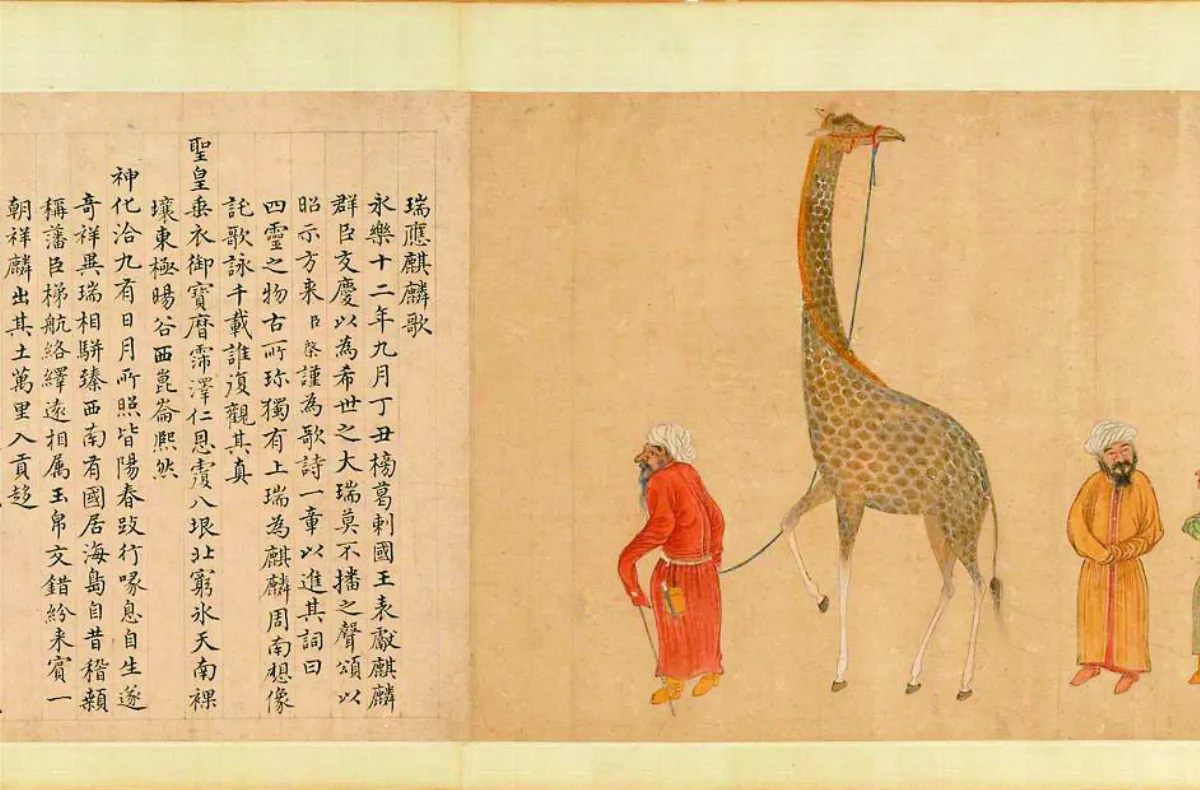 瑞應麒麟歌
永樂十二年九月丁丑榜葛剌國王表獻麒麟
群臣交慶以為希世之大瑞莫不播之聲頌以
昭示方来臣棨謹為歌詩一章以進其詞曰
四靈之物古所珎獨有上瑞為麒麟周南想像
託歌詠千載誰復觀其真
聖皇垂衣御寶曆霈澤仁恩覃八垠北窮氷天南裸
壤東極暘谷西崑崙熙然
神化洽九有日月所照皆陽春跂行喙息自生遂
奇祥異瑞相駢臻西南有國居海島自昔稽顙
稱藩臣梯航絡繹遠相属玉帛交錯紛来賓一
朝祥麟出其土萬里入貢趍